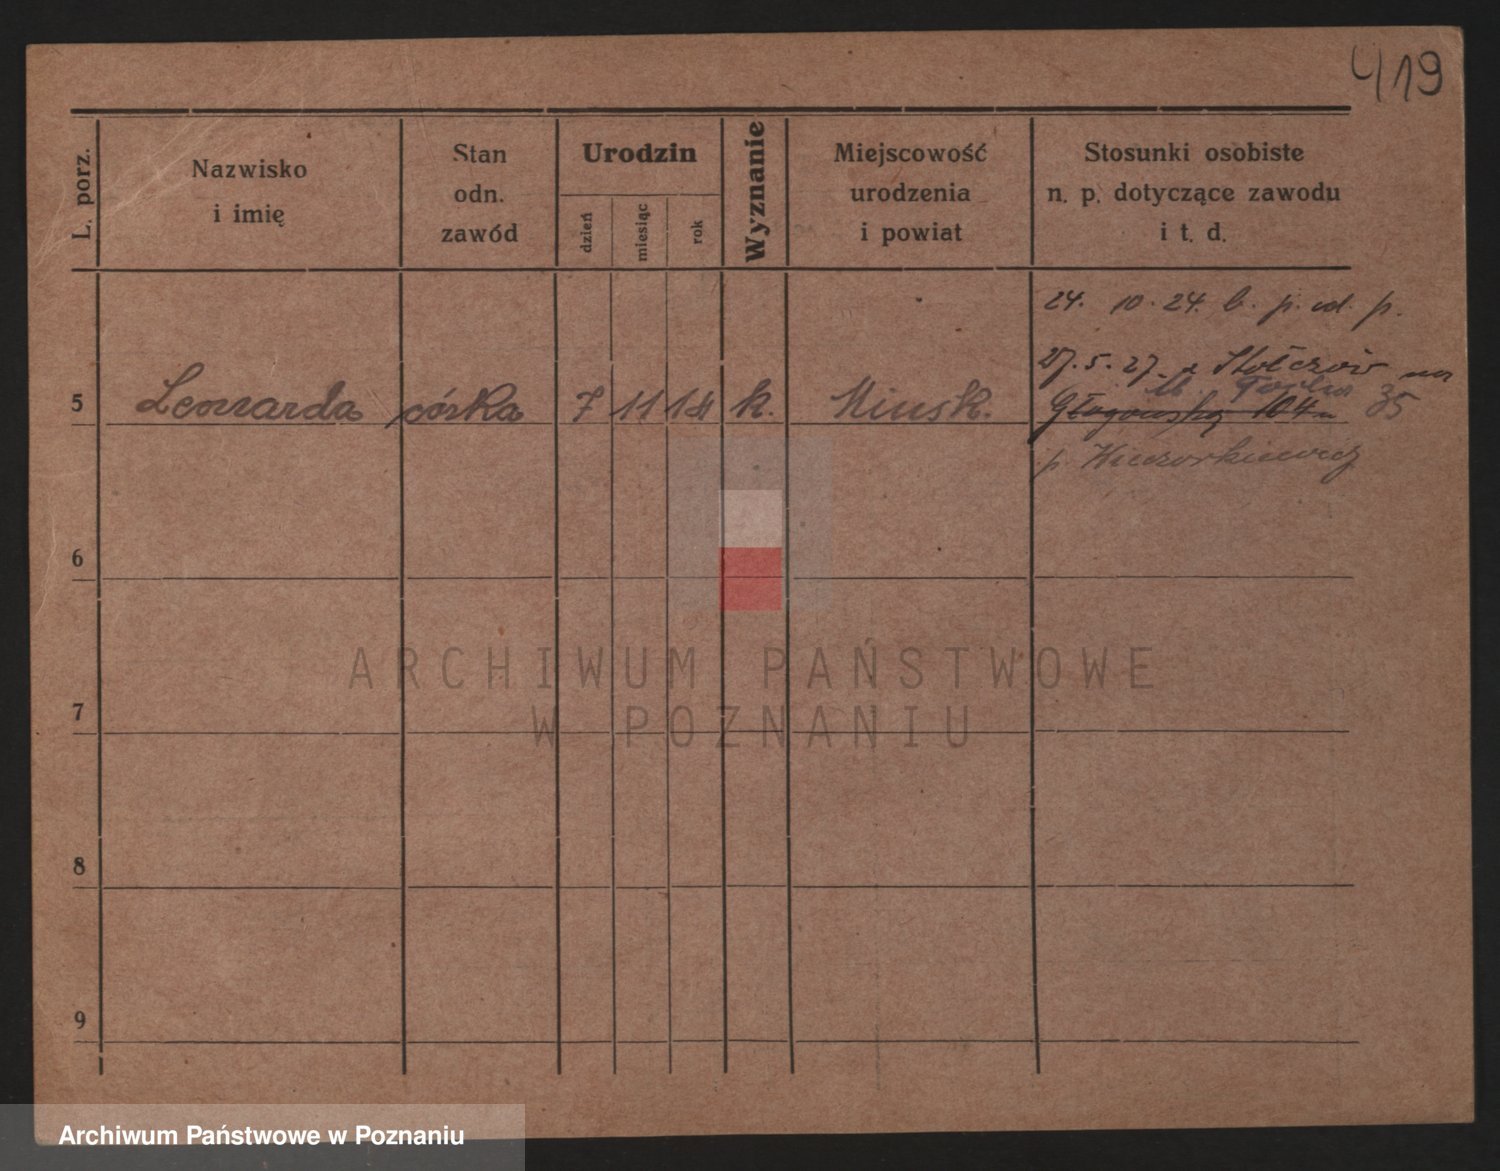 419
L. porz.
Nazwisko
i imię
Stan
odn.
zawód
Urodzin
dzień
miesiąc
rok
Wyznanie
Miejscowość
urodzenia
i powiat
Stosunki osobiste
n. p. dotyczące zawodu
i t. d.
24. 10. 24. b. p. od. p.
27. 5. 27. z Stołczów na
5 Leonarda córka 7 11 14 k. Minsk.
Głogowską 104 35
p.
6
7
8
9
ARCHIWUM PAŃSTWOWE
W POZNANIU
Archiwum Państwowe w Poznaniu